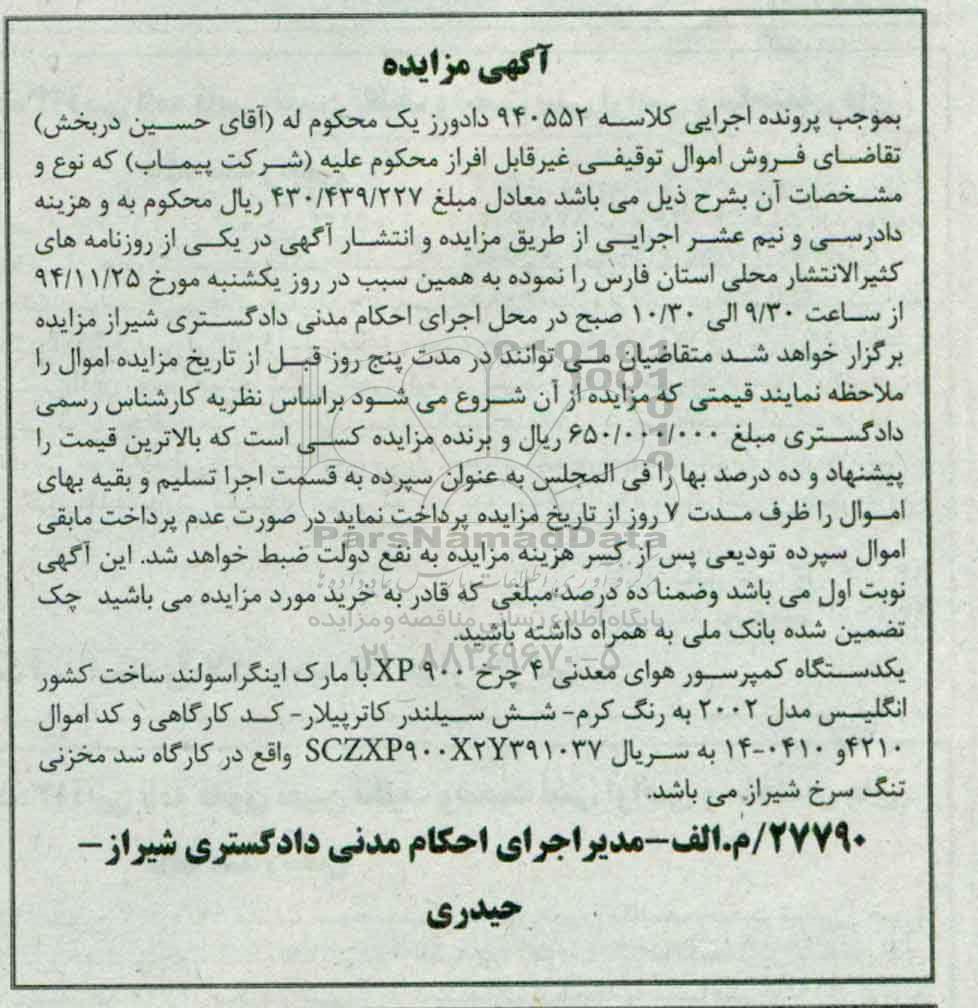 آگهی مزایده
بموجب پرونده اجرایی کلاسه ۹۴۰۵۵۲ دادورز یک محکوم له (آقای حسین دربخش)
تقاضای فروش اموال توقیفی غیرقابل افراز محکوم علیه (شرکت پیماب) که نوع و
مشخصات آن بشرح ذیل می باشد معادل مبلغ ۴۳۰/۴۳۹/۲۲۷ ریال محکوم به و هزینه
دادرسی و نیم عشر اجرایی از طریق مزایده و انتشار آگهی در یکی از روزنامه های
کثیرالانتشار محلی استان فارس را نموده به همین سبب در روز یکشنبه مورخ ۹۴/۱۱/۲۵
از ساعت ۹/۳۰ الی ۱۰/۳۰ صبح در محل اجرای احکام مدنی دادگستری شیراز مزایده
برگزار خواهد شد متقاضیان می توانند در مدت پنج روز قبل از تاریخ مزایده اموال را
ملاحظه نمایند قیمتی که مزایده از آن شروع می شود براساس نظریه کارشناس رسمی
دادگستری مبلغ ۶۵۰/۰۰۰/۰۰۰ ریال و برنده مزایده کسی است که بالاترین قیمت را
پیشنهاد و ده درصد بها را فی المجلس به عنوان سپرده به قسمت اجرا تسلیم و بقیه بهای
اموال را ظرف مدت ۷ روز از تاریخ مزایده پرداخت نماید در صورت عدم پرداخت مابقی
ParsNamadData
اموال سپرده تودیعی پس از کسر هزینه مزایده به نفع دولت ضبط خواهد شد. این آگهی
نوبت اول می باشد وضمنا ده درصد مبلغی که قادر به خرید مورد مزایده می باشید چک
پایگاه اطلاع رسانی مناقصه و مزایده
تضمین شده بانک ملی به همراه داشته باشید.
۰۲۱-۸۸۳۴۹۶۷۰-۵
یکدستگاه کمپرسور هوای معدنی ۴ چرخ XP ۹۰۰ با مارک اینگراسولند ساخت کشور
انگلیس مدل ۲۰۰۲ به رنگ کرم- شش سیلندر کاترپیلار- کد کارگاهی و کد اموال
۴۲۱۰و ۰۴۱۰-۱۴ به سریال SCZXP۹۰۰X۲Y۳۹۱۰۳۷ واقع در کارگاه سد مخزنی
تنگ سرخ شیراز می باشد.
۲۷۷۹۰/م.الف-مدیراجرای احکام مدنی دادگستری شیراز-
حیدری